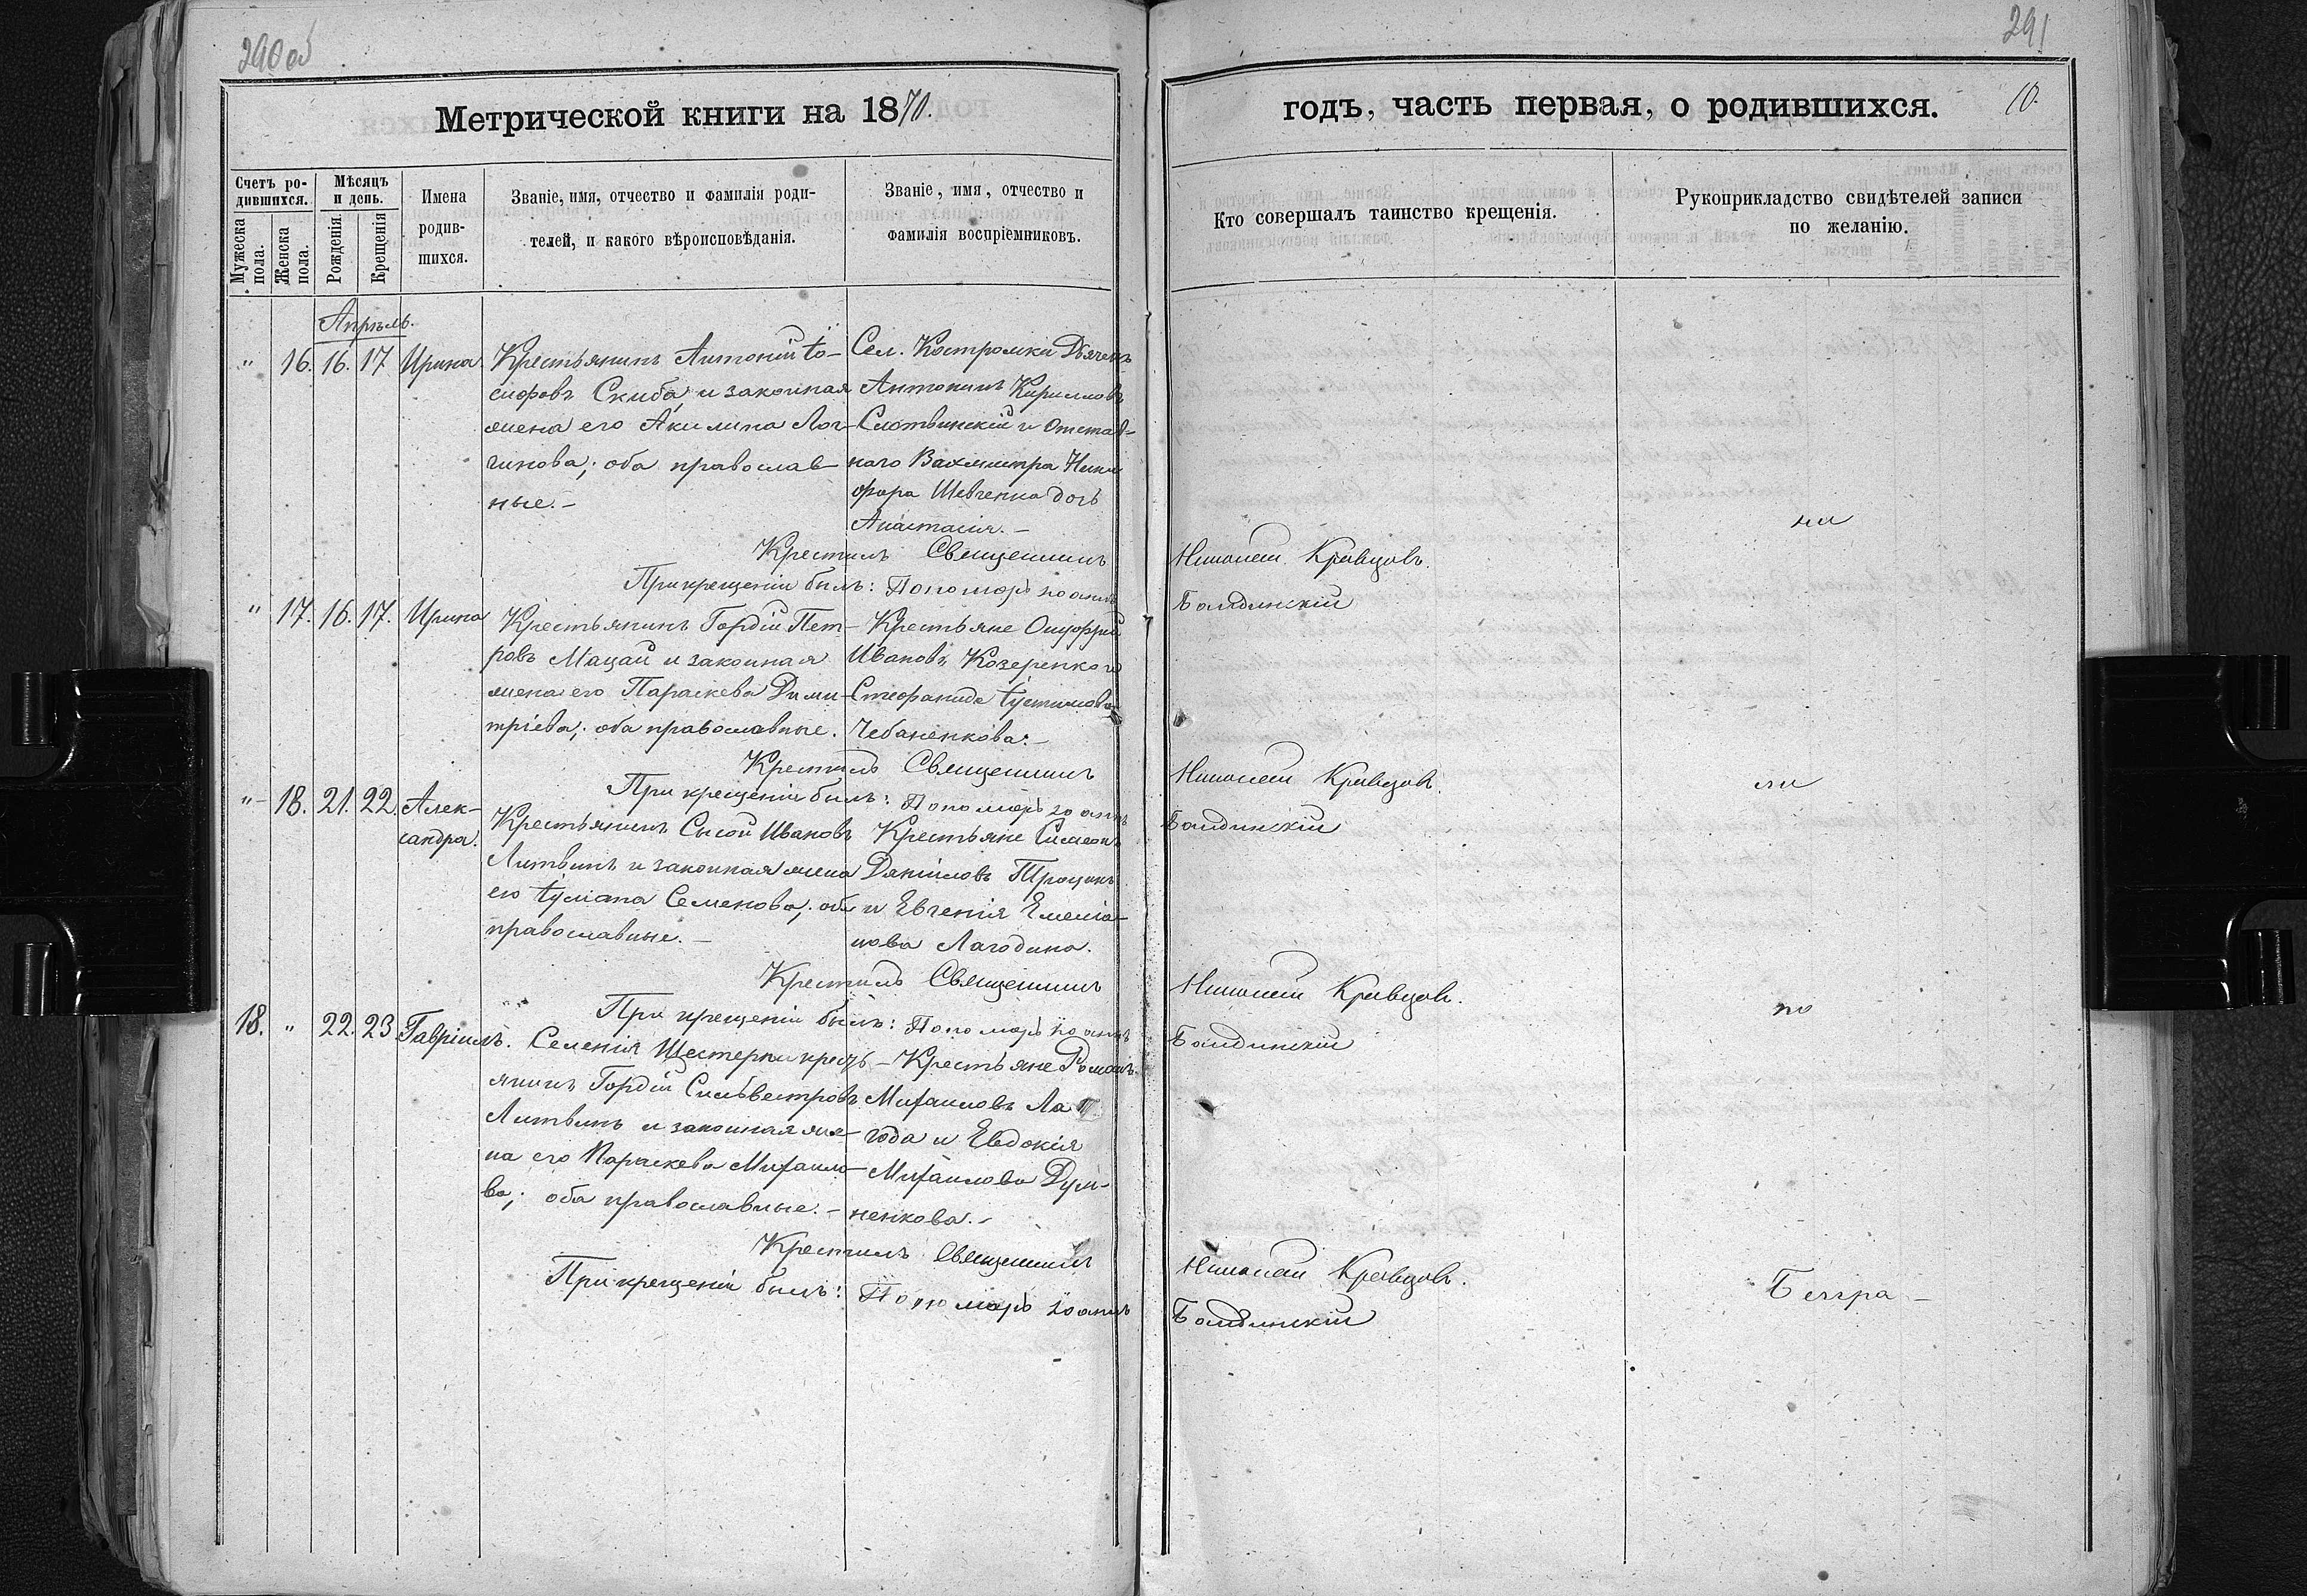 290 об
291
Метрической книги на 1870.
годъ, часть первая, о родившихся.
10.
Счетъ ро-
дившихся.
Мужеска
пола.
Женска
пола.
Мѣсяцъ
и день.
Рожденія
Крещенія
Имена
родив-
шихся.
Званіе, имя, отчество и фамилія роди-
телей, и какого вѣроисповѣданія.
Званіе, имя, отчество и
фамилія воспріемниковъ.
Кто совершалъ таинство крещенія.
Рукоприкладство свидѣтелей записи
по желанію.
Апрѣль.
" 16. 16. 17. Ирина.
Крестьянинъ Антоній Іо-
сифовъ Скиба, и законная
жена его Акилина Лог-
гинова; оба православ-
ные. –
Сел. Костромки Дьячекъ
Антонинъ Кирилловъ
Слотвинскій и Отстав-
наго Вахмистра Ники
фора Шевченка дочь
Анастасія. –
Крестилъ Священникъ
Николай Кравцовъ.
на
При крещеніи былъ: Пономарь Іоаннъ
Балдинскій
" 17. 16. 17. Ирина
Крестьянинъ Гордій Пет-
ровъ Мацай и законная
жена его Параскева Дими-
тріева; оба православные.
Крестьяне Онуфрій
Ивановъ Козеренко и
Стефанида Іустинова
Чебаненкова. –
Крестилъ Священникъ
Николай Кравцовъ.
При крещеніи былъ: Пономарь Іоаннъ
Балдинскій
" 18. 21. 22. Алек-
сандра.
Крестьянинъ Сысой Ивановъ
Литвинъ и законная жена
его Іуліана Семенова; оба
православные. –
Крестьяне Симеонъ
Даніиловъ Троцонъ
и Евгенія Емеліа-
нова Лагодина.
Крестилъ Священникъ
Николай Кравцовъ.
по
При крещеніи былъ: Пономарь Іоаннъ
Балдинскій
18. " 22. 23. Гавріилъ.
Селенія Шестерни кресть-
янинъ Гордій Сильвестровъ
Литвинъ и законная же-
на его Параскева Михаило-
ва; оба православные. –
Крестьяне Романъ
Михаиловъ Ла
года и Евдокія
Михаилова Дум-
ненкова. –
Крестилъ Священникъ
Николай Кравцовъ.
При крещеніи былъ: Пономарь Іоаннъ
Балдинскій